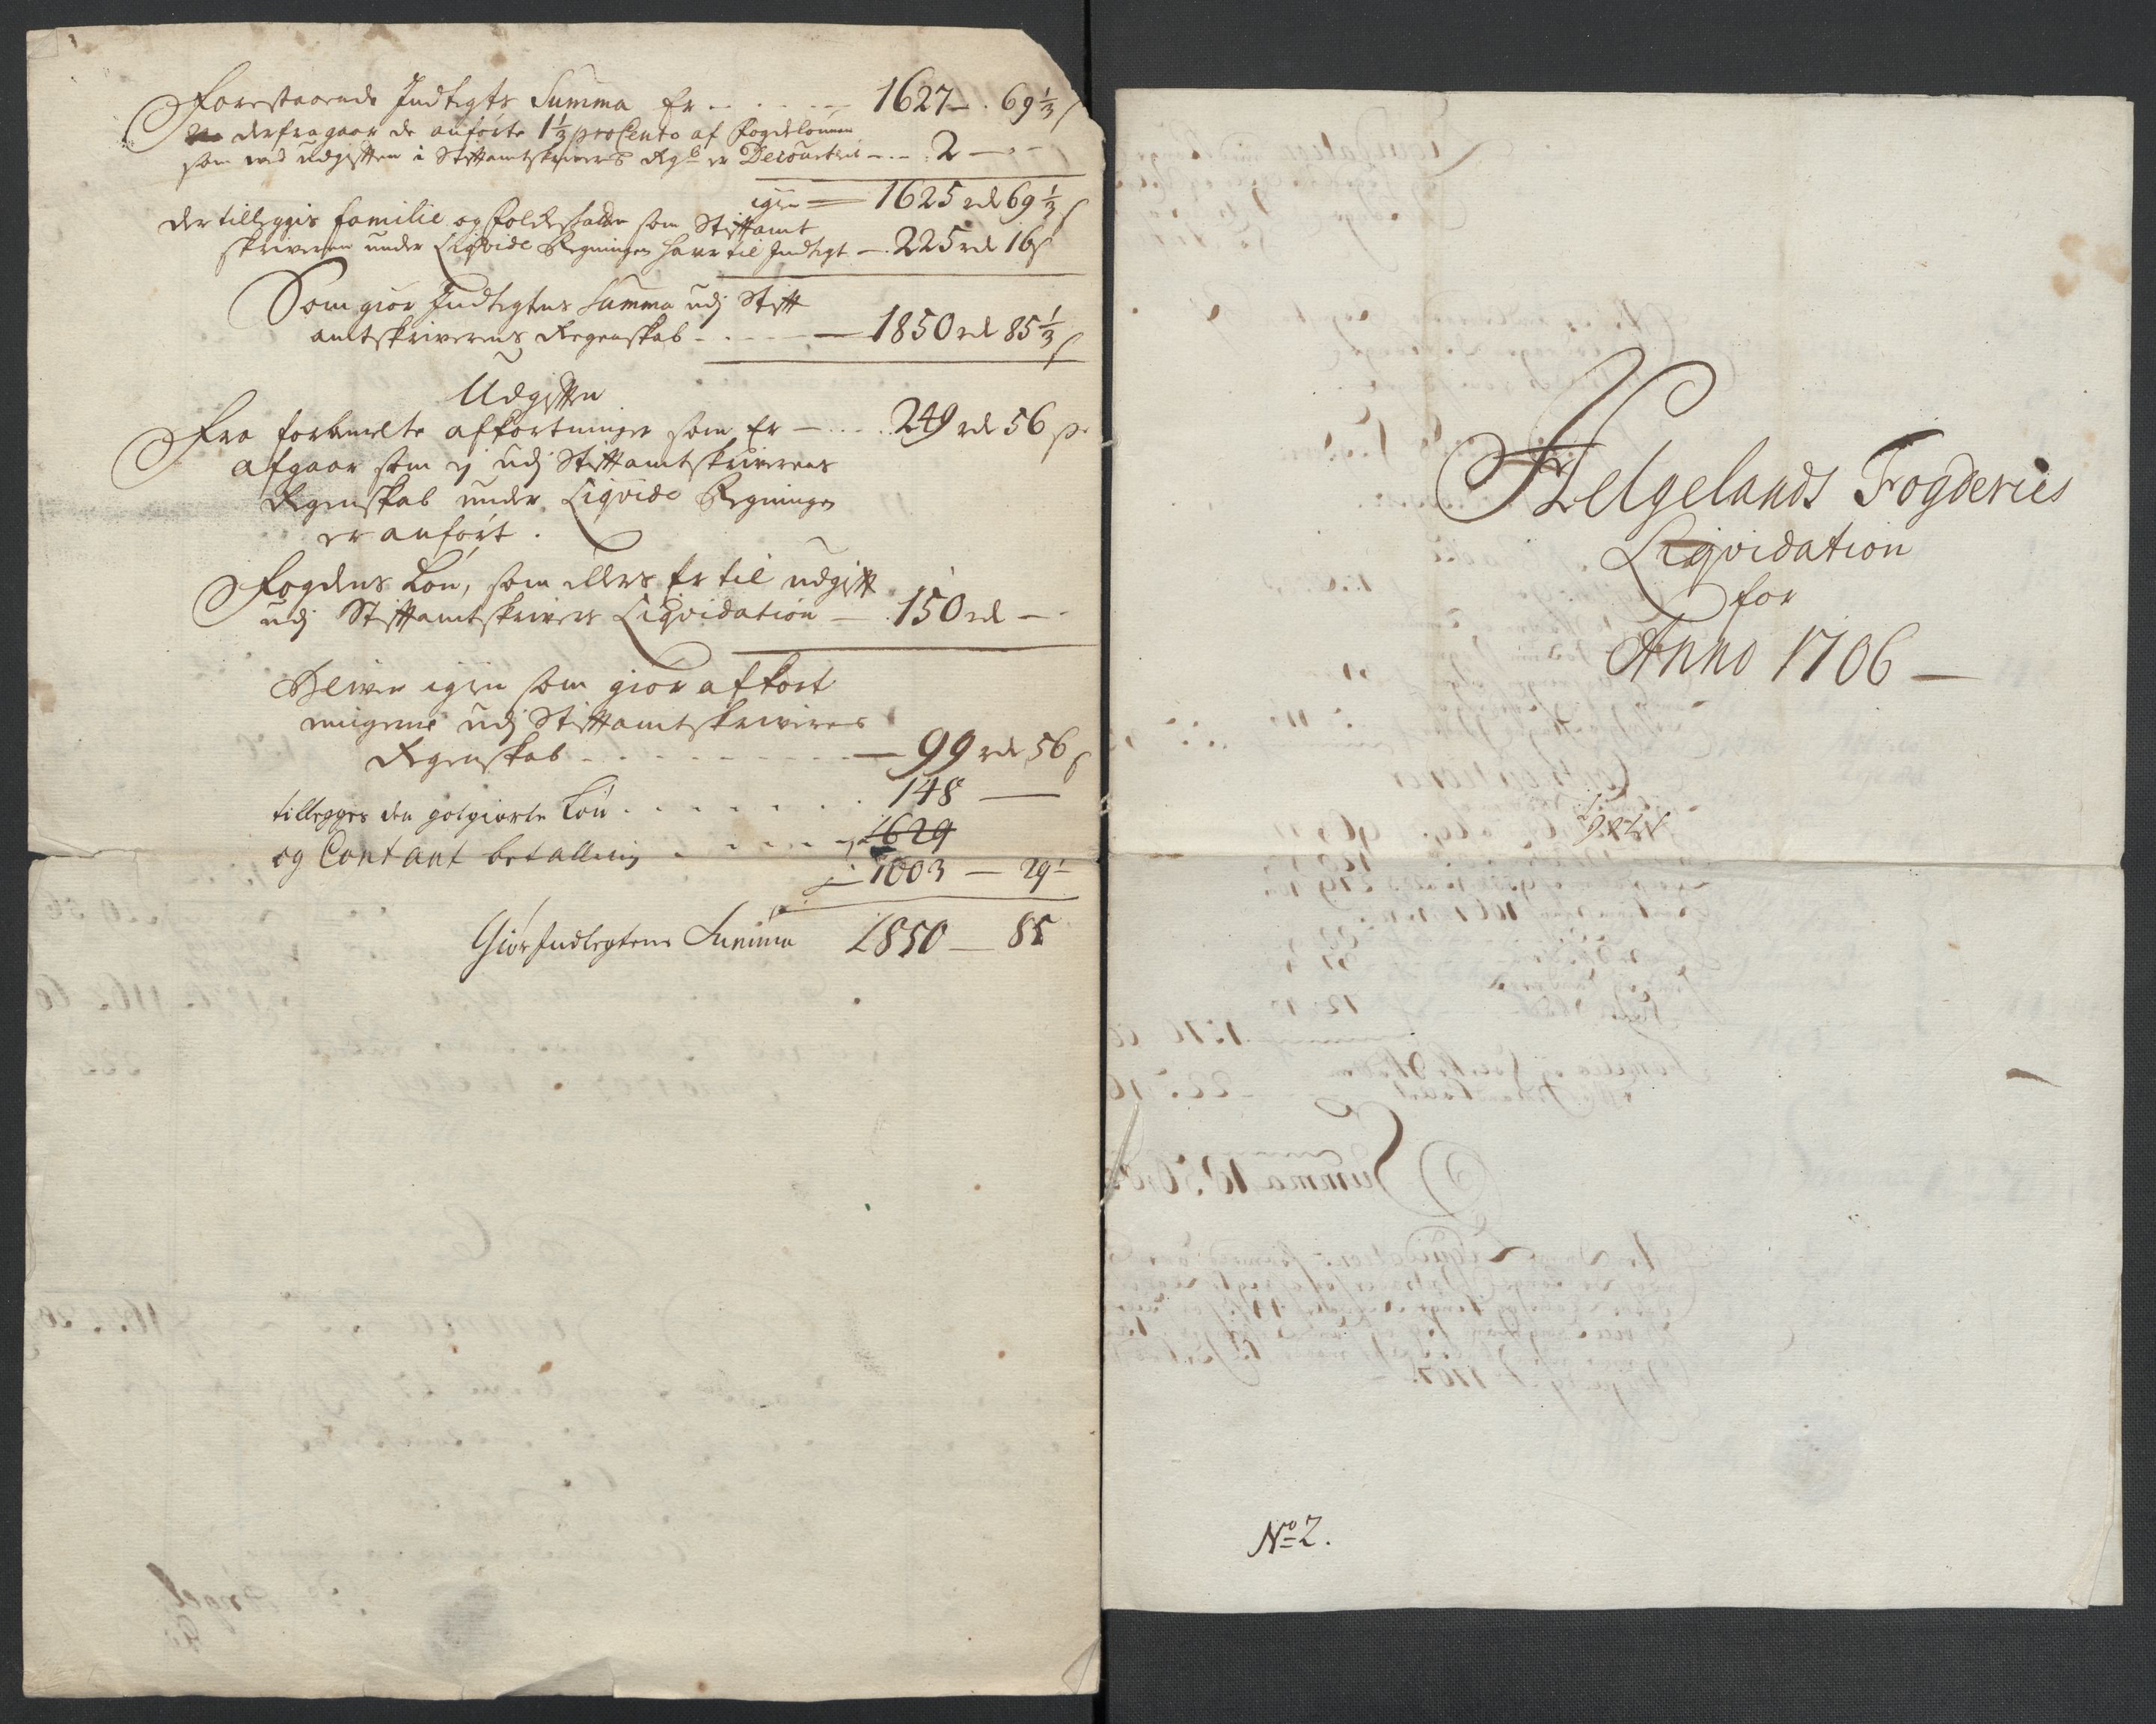 Forestaaende Indtegts Summa Er - - - - - 1627 - . 69⅓ s
derfra gaar de anførte 1⅓ pro Cento af Fogdelønnen
som ved udgifften i Stiftamtskriverens Regsk: er Decourterit - - . 2 - - -
igien = 1625 rdr 69⅓ s
der tilleggis familie og folcke skatten som Stiftamt
skriveren under Liqvide Regningen haver til Indtegt - . 225 rdr 16 s
Som giør Indtegtens Summa udj Stift
amtskriverens Regenskab - - - - 1850 rdr 85⅓ s
Udgifften
Fra forbemelte afkortninger som Er - - - . 249 rdr 56 s
afgaar som ej udj Stiftamtskriverens
Regenskab under Liqvide Regningen
er anført .
Fogdens Løn, som ellers Er til udgift
udj Stiftamtskrivers Liqvidation - . 150 rdr - -
Bliver igien som giør afkort
ningerne udj Stiftamtskriverens
Regenskab - - - - - - - - - 99 rdr 56 s
tillegges den gotgiorte Løn . . . . . . . 148 -
og Contant betalling . . . . . 1629
1603 - 29⅓
Giør Indtegtens Summa 1850 - 85
Helgelands Fogderies
Liqvidation
for
Anno 1706 -
No 2.